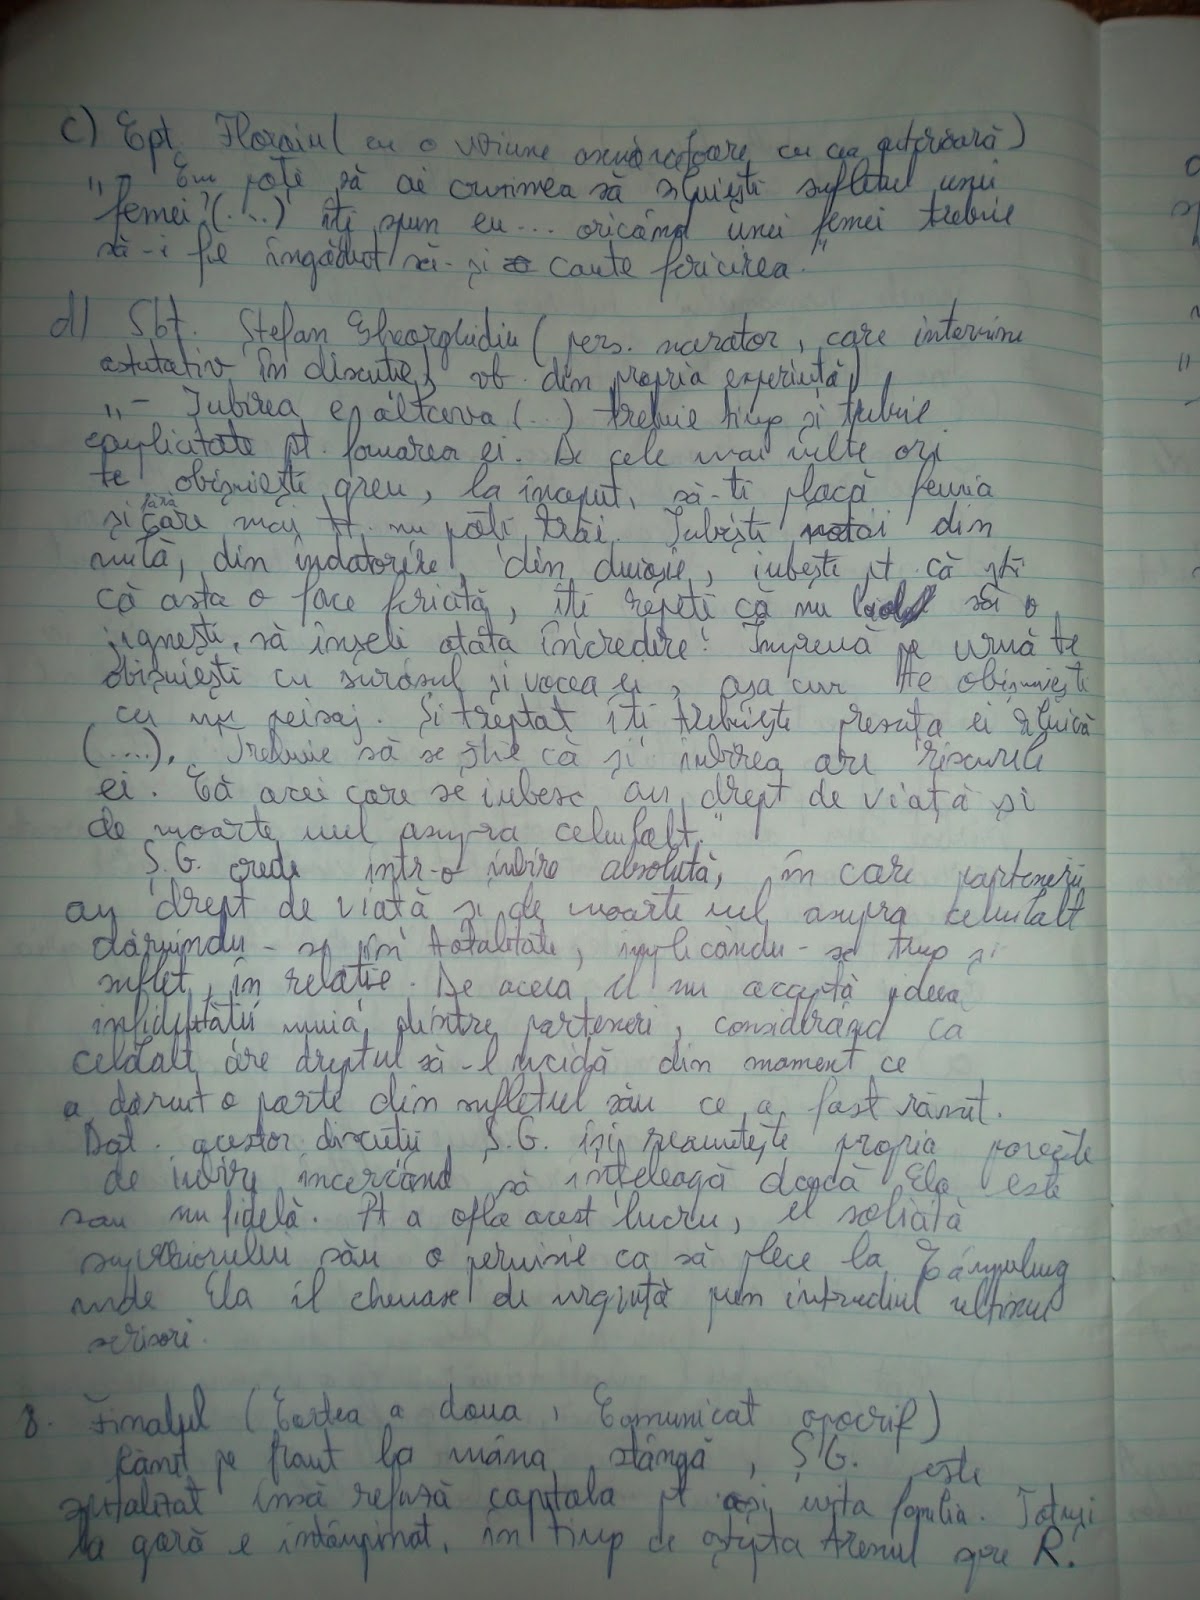 c) Cpt. Floroiu (cu o viziune asemănătoare cu cea anterioară)
„- Cum poți să ai cruzimea să siluiești sufletul unei
femei? (....) îți spun eu... oricând unei femei trebuie
să-i fie îngăduit să-și caute fericirea."
d) Sbt. Ștefan Gheorghidiu (pers. narator, care intervine
în discuție, vb. din propria experiență)
„- Iubirea e altceva (...) trebuie timp și trebuie
complicitate pt. formarea ei. De cele mai multe ori
te obișnuiești greu, la început, să-ți placă femeia
și fără care mai tt. nu poți trăi. Iubești din
milă, din îndatorire, din duioșie, iubești pt că ști
că asta o face fericită, îți repeți că nu să o
jignești, să înșeli atâta încredere! Împreuă pe urmă te
obișnuiești cu surâsul și vocea ei, așa cum te obișnuiești
cu un peisaj. Și treptat îți trebuiește prezența ei zilnică
(.....). Trebuie să se știe că și iubirea are riscurile
ei. Că acei care se iubesc au drept de viață și
de moarte unul asupra celuilalt."
Ș.G. crede într-o iubire absolută, în care partenerii
au drept de viață și de moarte unul asupra celuilalt
dăruindu-se în totalitate, implicându-se timp și
suflet, în relație. De aceea el nu acceptă ideea
infidelității unuia dintre parteneri, considerând că
celălalt are dreptul să-l ucidă din moment ce
a dăruit o parte din sufletul său ce a fost rănit.
Dat. acestor discuții, Ș.G. își reamintește propria poveste
de iubire încercând să înțeleagă dacă Ela este
sau nu fidelă. Pt a afla acest lucru, el solicită
superiorului său o permisie ca să plece la Câmpulung
unde Ela îl chemase de urgență prin intermediul ultimei
scrisori.
8. Finalul (Cartea a doua, Comunicat apocrif)
Rănit pe front la mâna stângă, Ș.G. este
spitalizat însă refuză capitala pt a-și vizita familia. Totuși
la gară e întâmpinat, în timp ce aștepta trenul spre R.